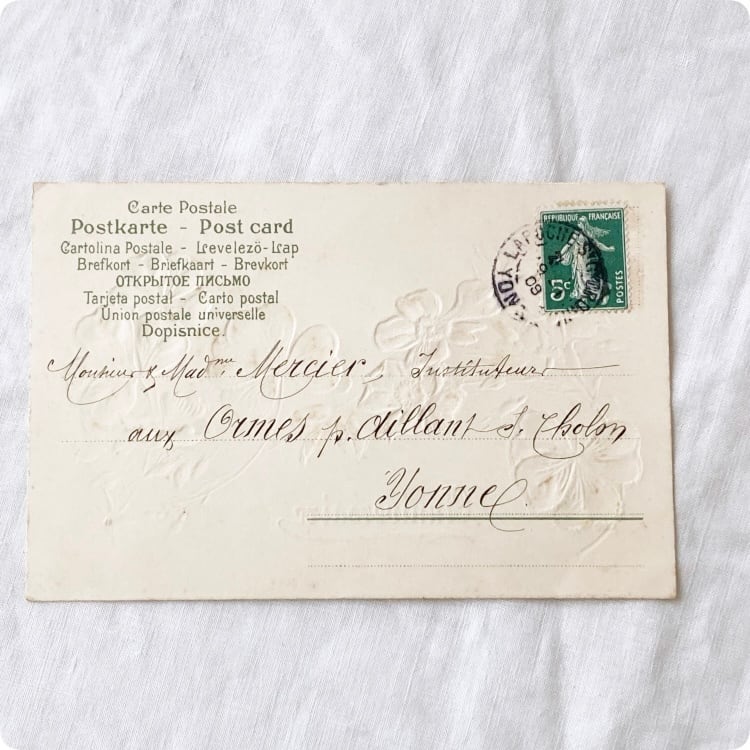 Carte Postale
Postkarte - Post card
Cartolina Postale - Levelezö-Lap
Brefkort - Briefkaart - Brevkort
ОТКРЫТОЕ ПИСЬМО
Tarjeta postal - Carto postal
Union postale universelle
Dopisnice.
REPUBLIQUE FRANÇAISE
5c
POSTES
09
Monsieur & Madme Mercier, Instituteurs
aux Ormes p. Aillant S. Tholon
Yonne